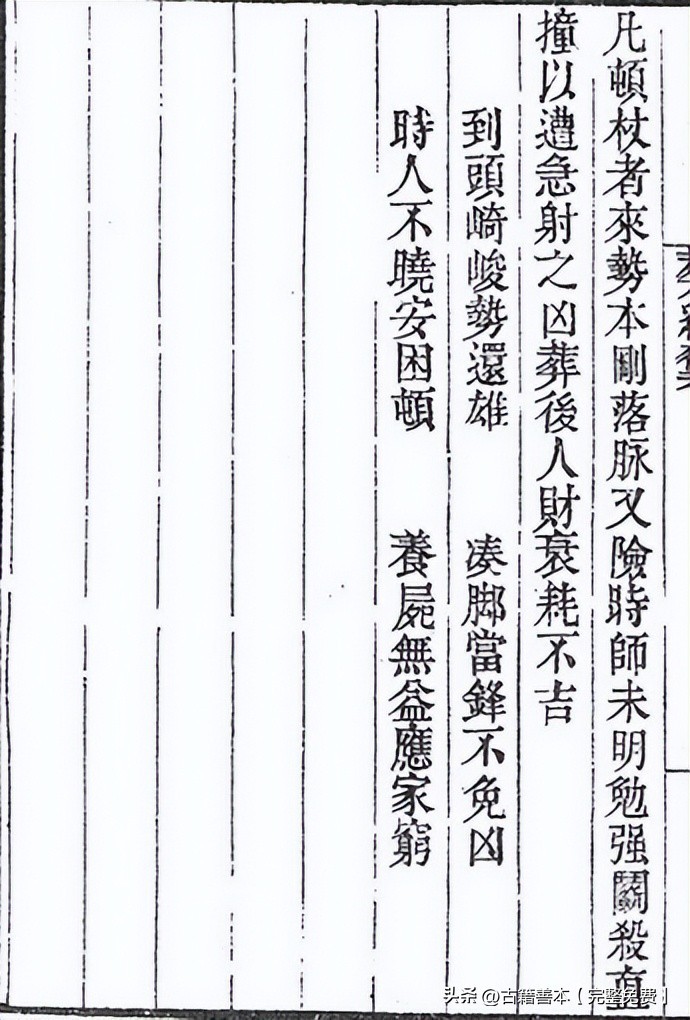 凡頓杖者來勢本剛落脉又險時師未明勉强鬭殺直
撞以遭急射之凶葬後人財衰耗不吉
到頭崎峻勢還雄　凑脚當鋒不免凶
時人不曉安困頓　養屍無益應家窮
头条 @古籍善本【完整免费】